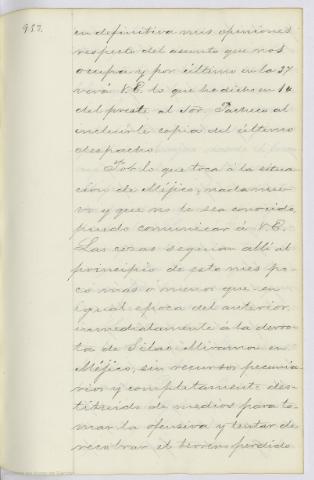 957.
en definitiva mis opiniones
respecto del asunto que nos
ocupa y por último en la 37
verá V.E. lo que he dicho en 14
del preste al Sor. Pacheco al
incluirle copia del último
despacho.
Por lo que toca á la situa
cion de Méjico, nada nue
vo y que no le sea conocido,
puedo comunicar á V.E.
Las cosas seguian alli al
principio de este mes po
co mas ó menos que en
igual epoca del anterior,
inmediatamente á la derro
ta de Silao. Miramon en
Méjico, sin recursos pecunia
rios y completamente des
tituido de medios para to
mar la ofensiva y tratar de
recobrar el terreno perdido